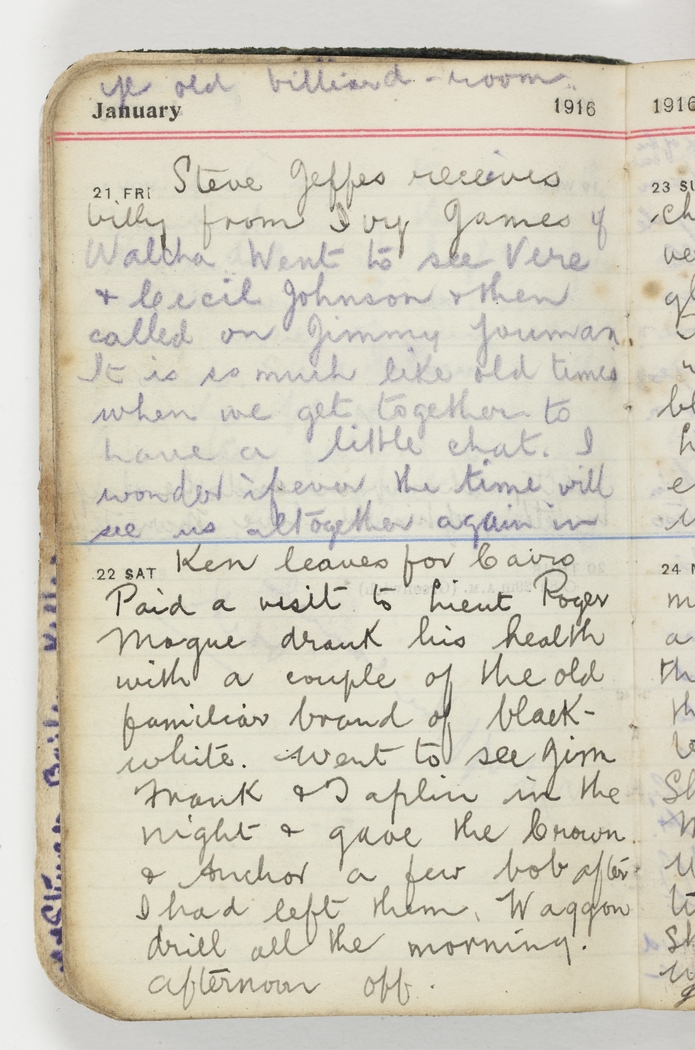 ye old billiard-room.
January 1916
21 FRI Steve Jeffes receives
billy from Ivy James of
Walcha Went to see Vere
& Cecil Johnson & then
called on Jimmy Youman.
It is so much like old times
when we get together to
have a little chat. I
wonder if ever the time will
see us altogether again in
22 SAT Ken leaves for Cairo
Paid a visit to Lieut Roger
Mogue drank his health
with a couple of the old
familiar brand of black-
white. Went to see Jim
Frank & Taplin in the
night & gave the Crown
& Anchor a few bob after
I had left them. Waggon
drill all the morning.
afternoon off.
1916
23 SU
24 M